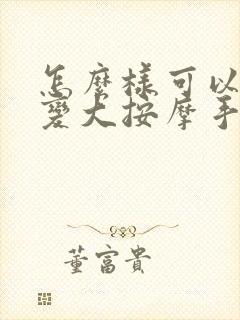 怎麽樣可以
變大按摩手
董富貴